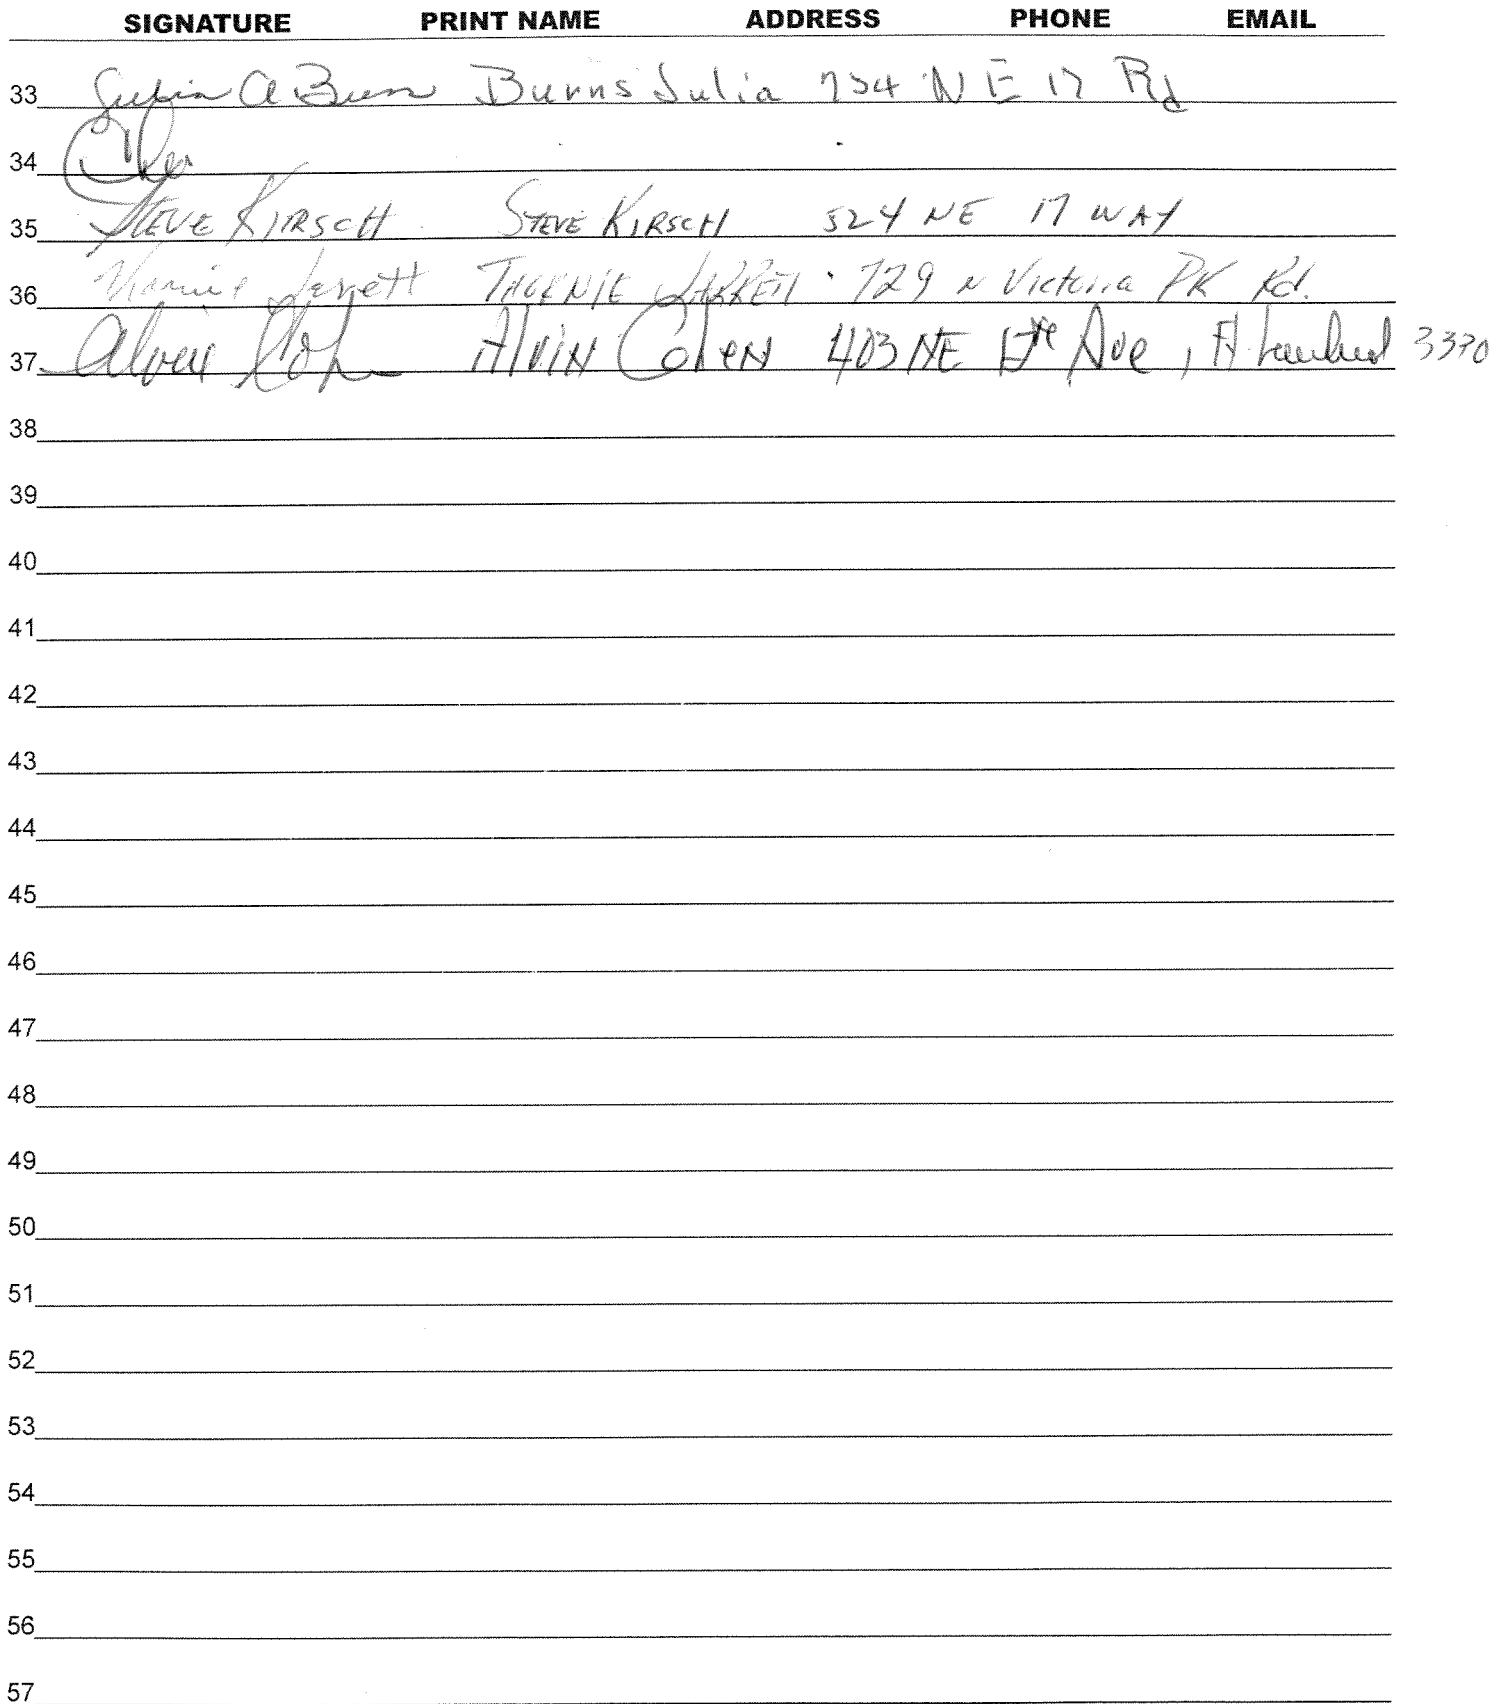 SIGNATURE PRINT NAME ADDRESS PHONE EMAIL
33 Julia A Burns Burns Julia 734 NE 17 Rd
34
35 STEVE KIRSCH STEVE KIRSCH 524 NE 17 WAY
36 Jarrett THORNIE JARRETT 729 N Victoria PK Rd.
37 Alvin Cohen Alvin Cohen 403 NE Ave, Ft. Lauderd 3330
38
39
40
41
42
43
44
45
46
47
48
49
50
51
52
53
54
55
56
57